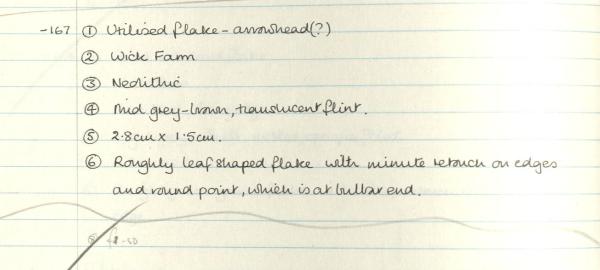 -167 ① Utilised flake - arrowhead(?)
② Wick Farm
③ Neolithic
④ Mid grey-brown, translucent flint.
⑤ 2.8cm x 1.5cm.
⑥ Roughly leaf shaped flake with minute retouch on edges
and round point, which is at bulbar end.